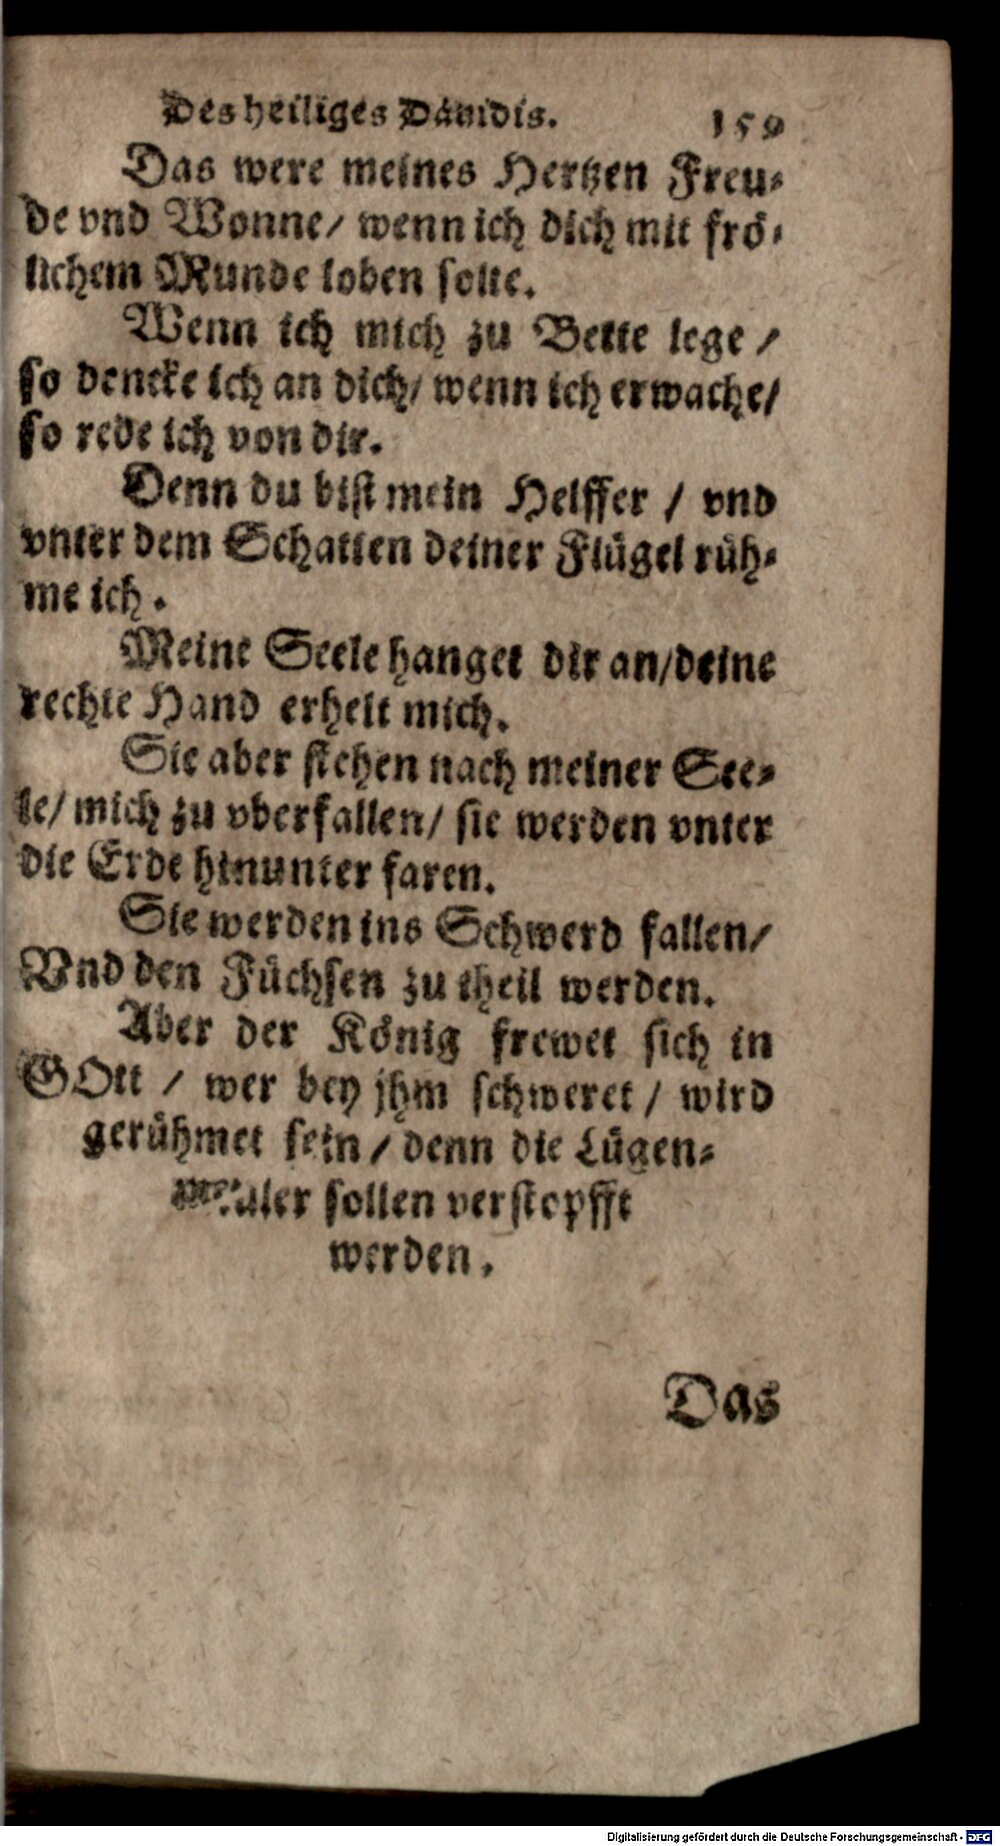 Des heiliges Dauidis. 159
Das were meines Hertzen Freu-
de vnd Wonne/ wenn ich dich mit frö-
lichem Munde loben solte.
Wenn ich mich zu Bette lege /
so dencke ich an dich/ wenn ich erwache/
so rede ich von dir.
Denn du bist mein Helffer / vnd
vnter dem Schatten deiner Flügel rüh-
me ich.
Meine Seele hanget dir an/deine
rechte Hand erhelt mich.
Sie aber stehen nach meiner See-
le/ mich zu vberfallen/ sie werden vnter
die Erde hinunter faren.
Sie werden ins Schwerd fallen/
Vnd den Füchsen zu theil werden.
Aber der König frewet sich in
GOtt / wer bey jhm schweret / wird
gerühmet sein / denn die Lügen-
sollen verstopfft
werden.
Das
Digitalisierung gefördert durch die Deutsche Forschungsgemeinschaft - DFG